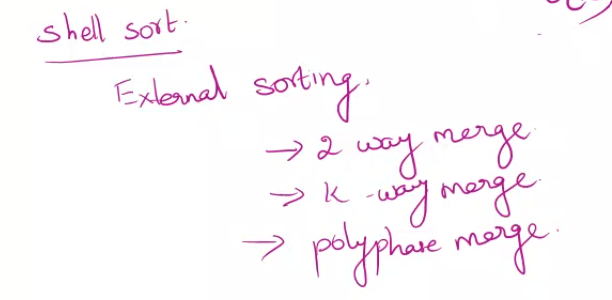 shell sort.
External sorting.
→ 2 way merge.
→ K-way merge.
→ polyphase merge.